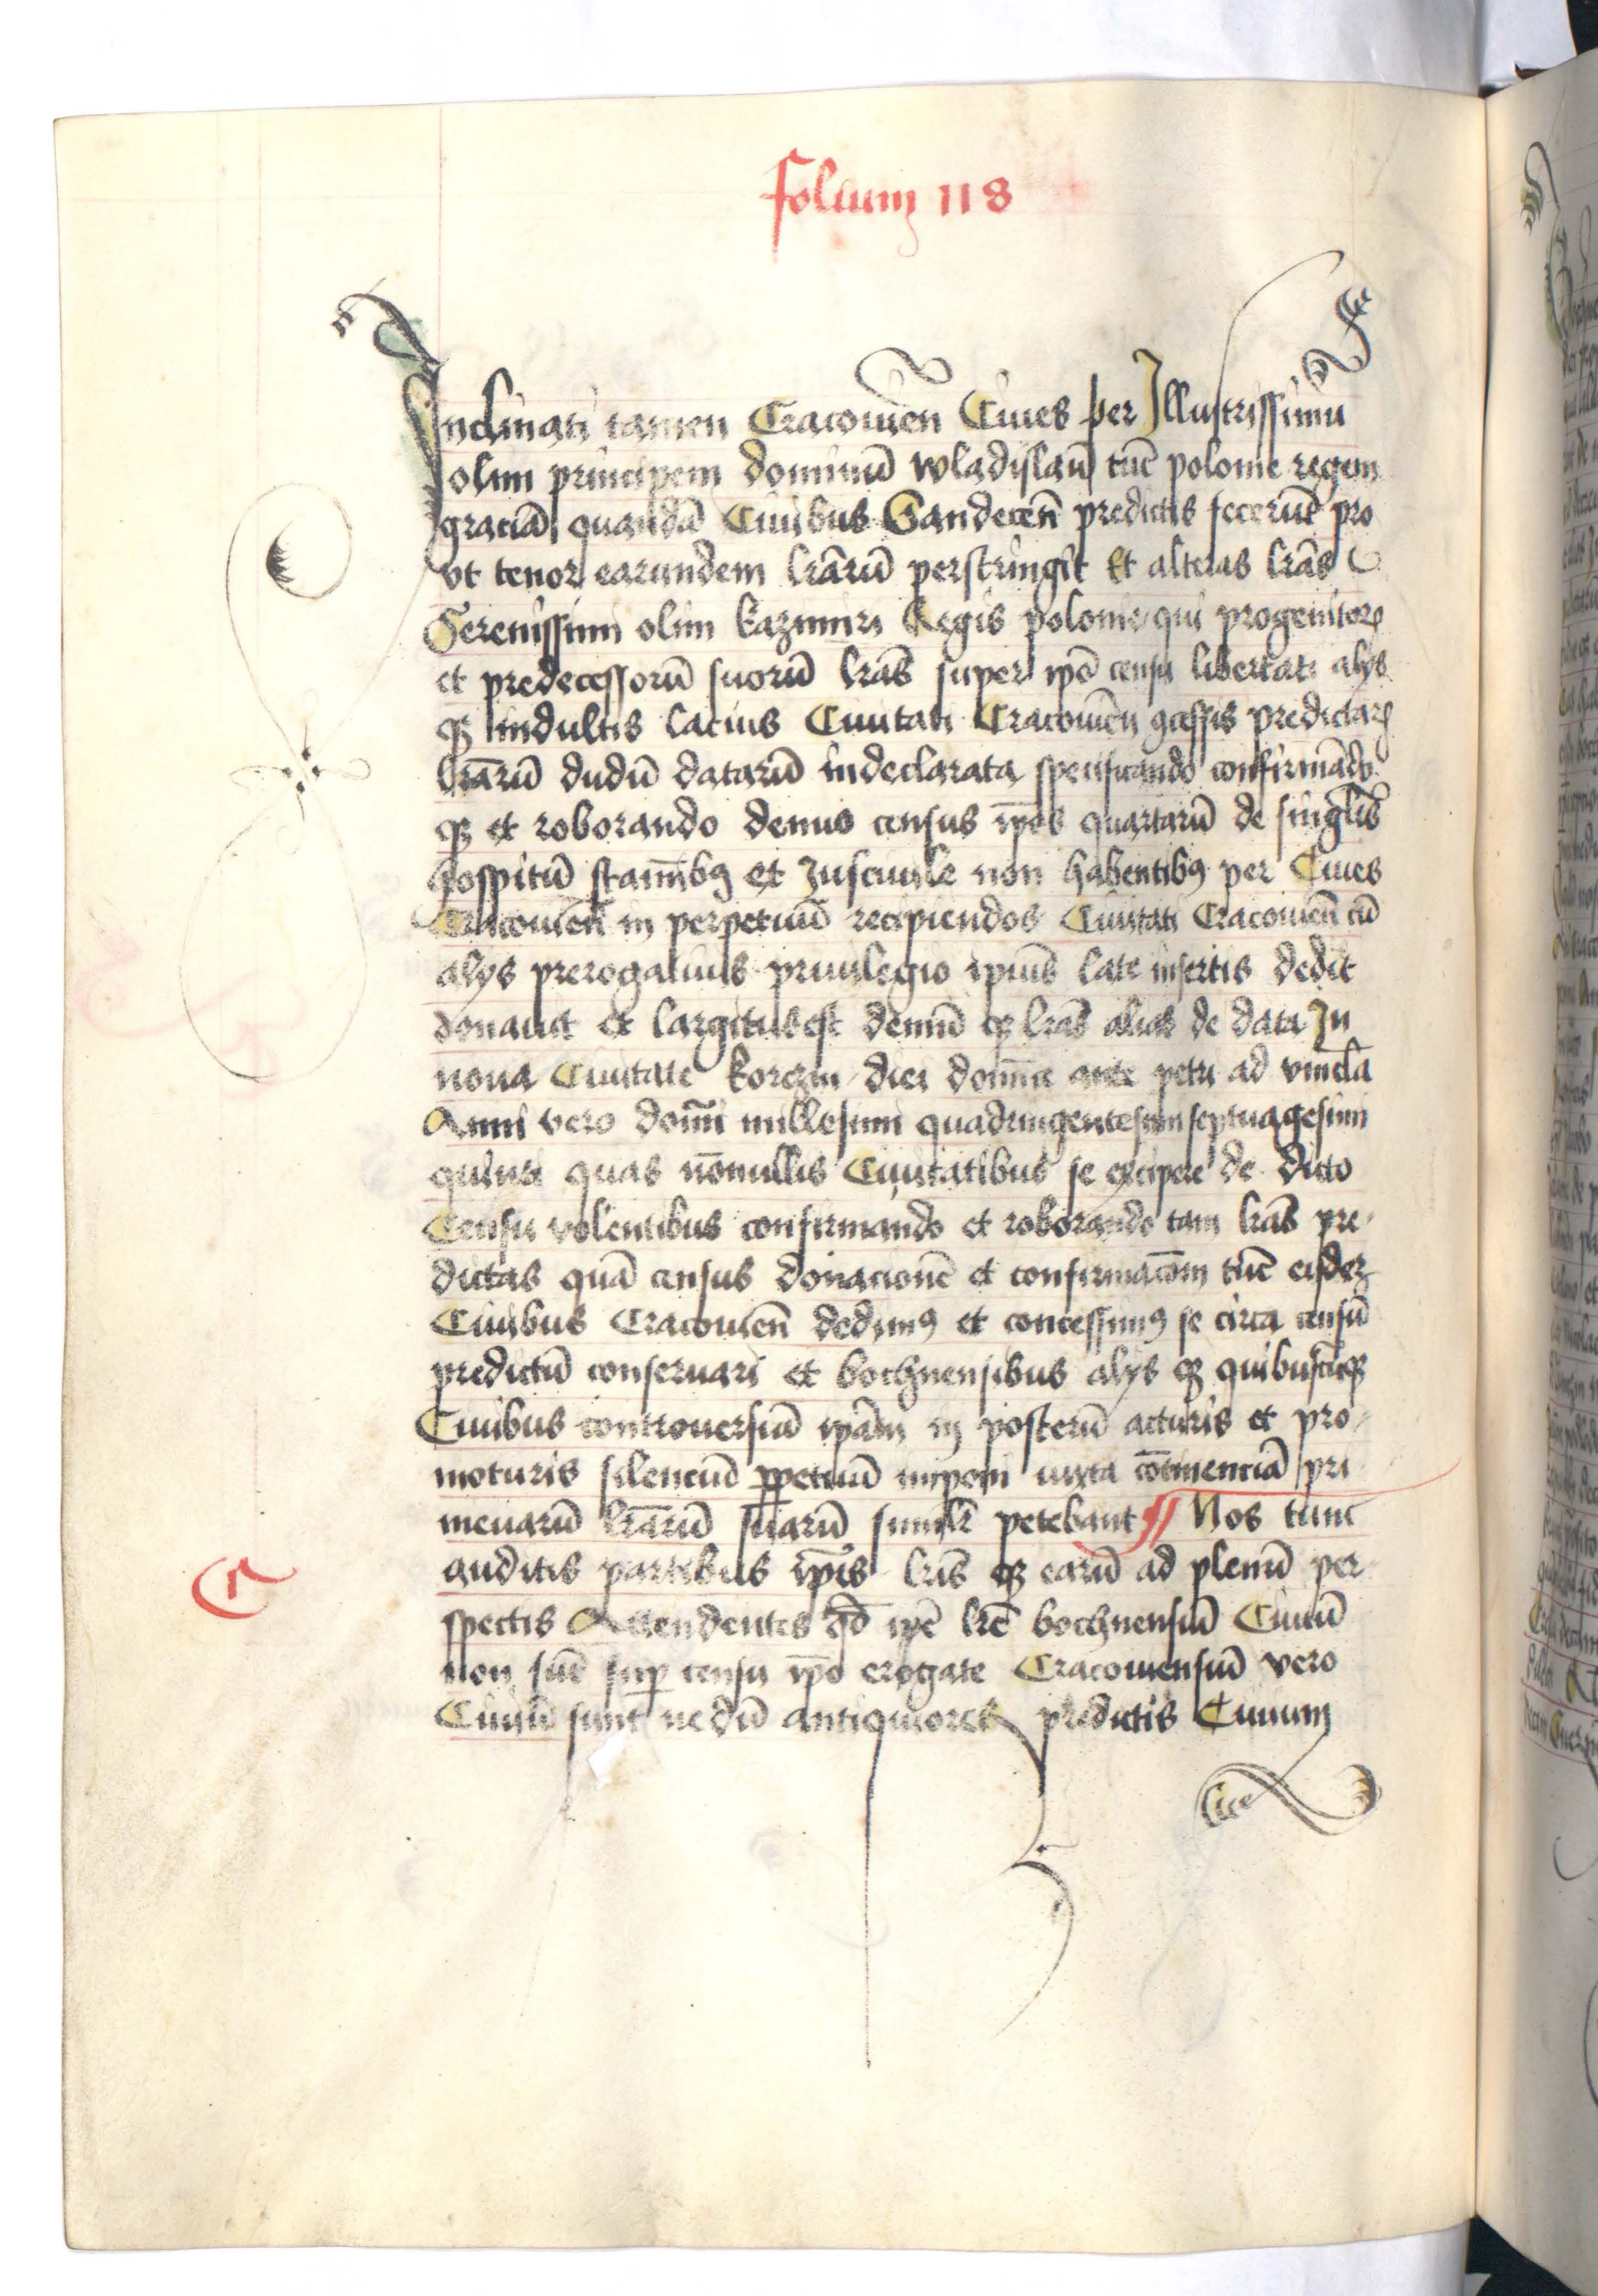 folium 118
Inclinati tamen Cracouien̄ Ciues per Illustrissimū
olim principem dominū wladislaū tūc polonie regem
graciā quandā Ciuibus Sandecen̄ predictis fecerūt pro
vt tenor earundem lr̄arū perstringit Et alteras lr̄as
Serenissimi olim kazimiri Regis polonie qui progenitoꝝ
et predecessorū suorū lr̄as super ip̄o censu libertati alys
qꝫ indultis lacius Ciuitati Cracouien̄ ꝯcessis predictaꝝ
lr̄arū dudū datarū indeclarata specificando confirmādo
qꝫ et roborando denuo census ip̄os quartarū de singl̄is
hospitū stamībꝰ et Iusciuile non habentibꝰ per Ciues
Cracouien̄ in perpetuū recipiendos Ciuitati Cracouien̄ cū
alys prerogatiuis priuilegio ip̄ius late insertis dedit
donauit et largitus est demū qꝫ lr̄as alias de data In
noua Ciuitate korczin diei domīce ante petri ad vincl̄a
Anni vero domī millesimi quadringentesimi septuagesimi
quinti quas nōnullis Ciuitatibus se excipere de dicto
Censu volentibus confirmando et roborando tam lr̄as pre
dictas quā census donacionē et confirmacōm tūc eisdeꝫ
Ciuibus Cracouien̄ dedimꝰ et concessimꝰ se circa censū
predictū conseruari et bochnensibus alys qꝫ quibuscūqꝫ
Ciuibus controuersiā ip̄am in posterū acturis et pro
moturis silenciū ꝑpetuū imponi iuxta cōtinenciā pri
meuarū lr̄arū suarū simil̄r petebant Nos tunc
auditis partibus ip̄is lr̄is qꝫ earū ad plenū per
spectis Attendentes qd̄ ip̄e lr̄e bochnensiū Ciuiū
non sūt suꝑ censu ip̄o erogate Cracouiensiū vero
Ciuiū sunt nedū antiquiores predictis Ciuium